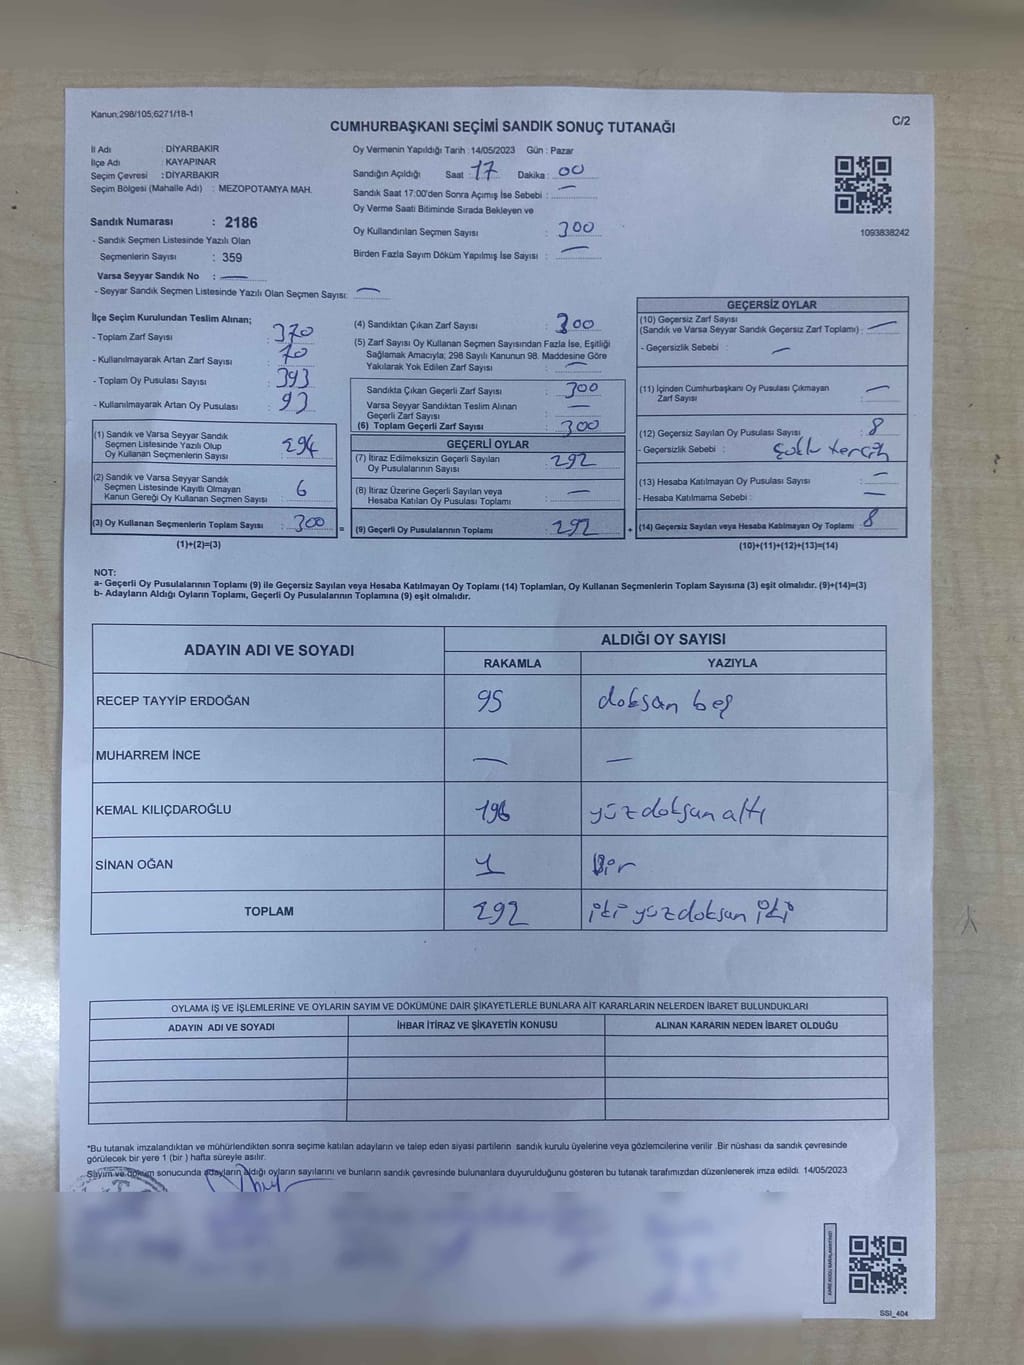 Kanun;298/105;6271/18-1
C/2
CUMHURBAŞKANI SEÇİMİ SANDIK SONUÇ TUTANAĞI
İl Adı : DİYARBAKIR
İlçe Adı : KAYAPINAR
Seçim Çevresi : DİYARBAKIR
Seçim Bölgesi (Mahalle Adı) : MEZOPOTAMYA MAH.
Sandık Numarası : 2186
- Sandık Seçmen Listesinde Yazılı Olan
Seçmenlerin Sayısı : 359
Varsa Seyyar Sandık No : —
- Seyyar Sandık Seçmen Listesinde Yazılı Olan Seçmen Sayısı: —
Oy Vermenin Yapıldığı Tarih : 14/05/2023 Gün : Pazar
Sandığın Açıldığı Saat : 17 Dakika : 00
Sandık Saat 17:00'den Sonra Açımış İse Sebebi : —
Oy Verme Saati Bitiminde Sırada Bekleyen ve
Oy Kullandırılan Seçmen Sayısı : 300
Birden Fazla Sayım Döküm Yapılmış İse Sayısı : —
1093838242
İlçe Seçim Kurulundan Teslim Alınan;
- Toplam Zarf Sayısı : 370
- Kullanılmayarak Artan Zarf Sayısı : 70
- Toplam Oy Pusulası Sayısı : 393
- Kullanılmayarak Artan Oy Pusulası : 93
(1) Sandık ve Varsa Seyyar Sandık
Seçmen Listesinde Yazılı Olup
Oy Kullanan Seçmenlerin Sayısı : 294
(2) Sandık ve Varsa Seyyar Sandık
Seçmen Listesinde Kayıtlı Olmayan
Kanun Gereği Oy Kullanan Seçmen Sayısı : 6
(3) Oy Kullanan Seçmenlerin Toplam Sayısı : 300 =
(1)+(2)=(3)
(4) Sandıktan Çıkan Zarf Sayısı : 300
(5) Zarf Sayısı Oy Kullanan Seçmen Sayısından Fazla İse, Eşitliği
Sağlamak Amacıyla; 298 Sayılı Kanunun 98. Maddesine Göre
Yakılarak Yok Edilen Zarf Sayısı : —
Sandıkta Çıkan Geçerli Zarf Sayısı : 300
Varsa Seyyar Sandıktan Teslim Alınan
Geçerli Zarf Sayısı : —
(6) Toplam Geçerli Zarf Sayısı : 300
GEÇERLİ OYLAR
(7) İtiraz Edilmeksizin Geçerli Sayılan
Oy Pusulalarının Sayısı : 292
(8) İtiraz Üzerine Geçerli Sayılan veya
Hesaba Katılan Oy Pusulası Toplamı : —
(9) Geçerli Oy Pusulalarının Toplamı : 292 +
GEÇERSİZ OYLAR
(10) Geçersiz Zarf Sayısı
(Sandık ve Varsa Seyyar Sandık Geçersiz Zarf Toplamı) : —
- Geçersizlik Sebebi : —
(11) İçinden Cumhurbaşkanı Oy Pusulası Çıkmayan
Zarf Sayısı : —
(12) Geçersiz Sayılan Oy Pusulası Sayısı : 8
- Geçersizlik Sebebi : Çoklu tercih
(13) Hesaba Katılmayan Oy Pusulası Sayısı : —
- Hesaba Katılmama Sebebi : —
(14) Geçersiz Sayılan veya Hesaba Katılmayan Oy Toplamı : 8
(10)+(11)+(12)+(13)=(14)
NOT:
a- Geçerli Oy Pusulalarının Toplamı (9) ile Geçersiz Sayılan veya Hesaba Katılmayan Oy Toplamı (14) Toplamları, Oy Kullanan Seçmenlerin Toplam Sayısına (3) eşit olmalıdır. (9)+(14)=(3)
b- Adayların Aldığı Oyların Toplamı, Geçerli Oy Pusulalarının Toplamına (9) eşit olmalıdır.
ADAYIN ADI VE SOYADI
ALDIĞI OY SAYISI
RAKAMLA YAZIYLA
RECEP TAYYİP ERDOĞAN 95 doksan beş
MUHARREM İNCE — —
KEMAL KILIÇDAROĞLU 196 yüz doksan altı
SİNAN OĞAN 1 Bir
TOPLAM 292 iki yüz doksan iki
OYLAMA İŞ VE İŞLEMLERİNE VE OYLARIN SAYIM VE DÖKÜMÜNE DAİR ŞİKAYETLERLE BUNLARA AİT KARARLARIN NELERDEN İBARET BULUNDUKLARI
ADAYIN ADI VE SOYADI İHBAR İTİRAZ VE ŞİKAYETİN KONUSU ALINAN KARARIN NEDEN İBARET OLDUĞU
*Bu tutanak imzalandıktan ve mühürlendikten sonra seçime katılan adayların ve talep eden siyasi partilerin sandık kurulu üyelerine veya gözlemcilerine verilir .Bir nüshası da sandık çevresinde
görülecek bir yere 1 (bir ) hafta süreyle asılır.
Sayım ve döküm sonucunda adayların aldığı oyların sayılarını ve bunların sandık çevresinde bulunanlara duyurulduğunu gösteren bu tutanak tarafımızdan düzenlenerek imza edildi. 14/05/2023
SSI_404